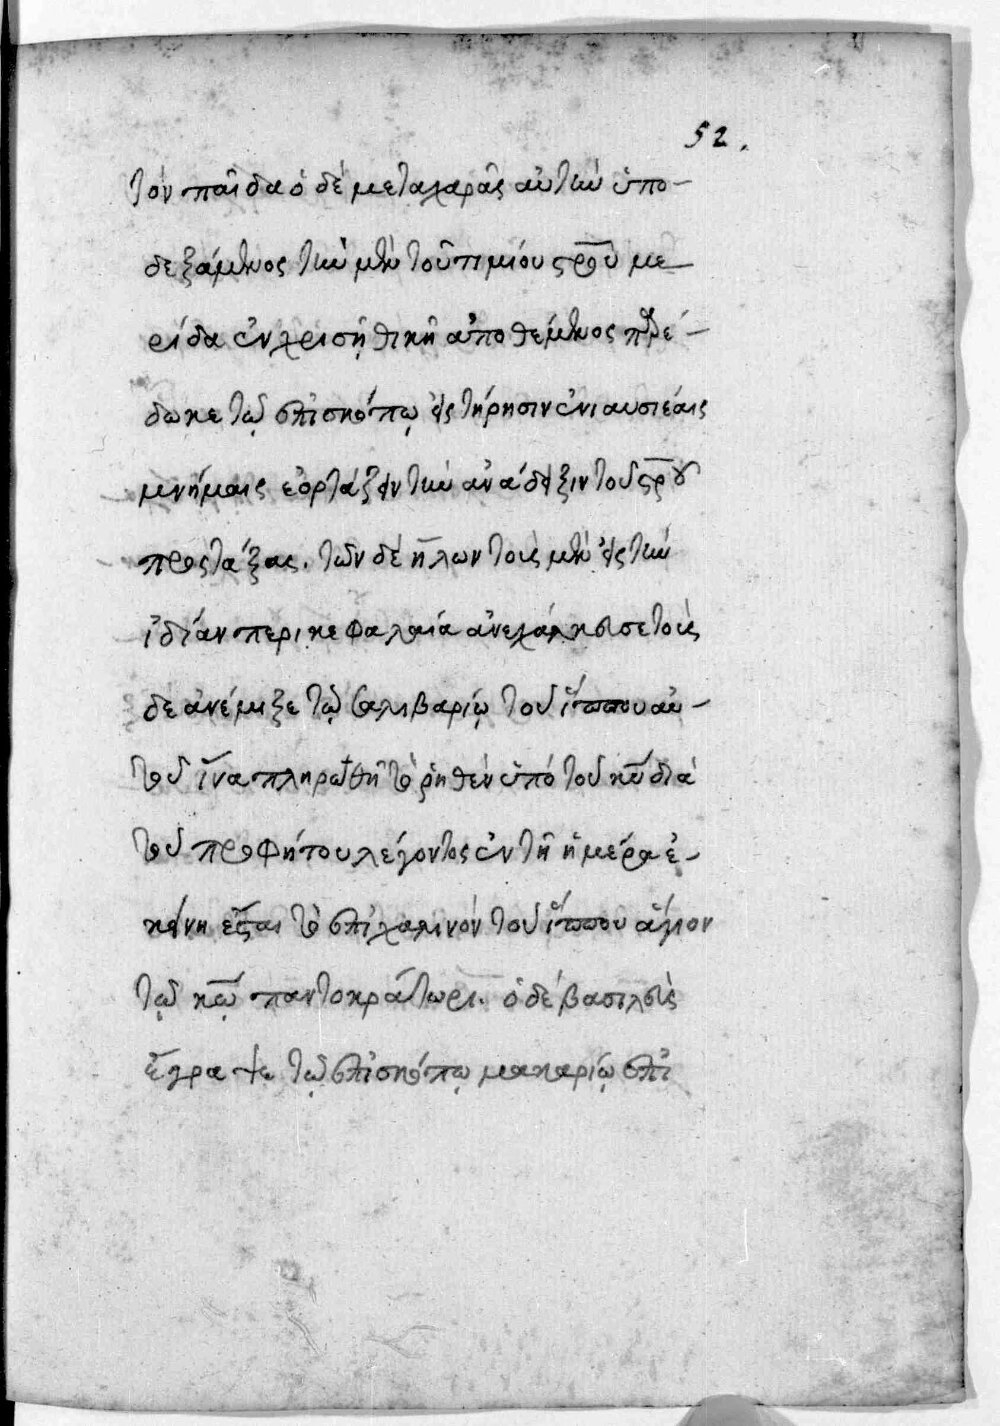 52.
τόν παῖδα ὁ δέ μεταχαρᾶς αὐτὴν ὑπο-
δεξάμενος τὴν μὲν τοῦ τιμίου σ̅ρ̅ο̅ῦ με
ρίδα ἐν χρισῆ θίκη ἀποθέμενος παρέ-
δωκε τῷ ἐπισκόπῳ εἰς τήρησιν ἐνιαυσιέαις
μνήμαις ἑορτάζειν τὴν ἀνάδειξιν τοῦ σ̅ρ̅ου
προςτάξας. τῶν δέ ἥλων τοὺς μὲν εἰς τὴν
ἰδίαν περικεφαλαία ἀνεχάλκευσε τοὺς
δὲ ἀνέμιξε τῷ σαλιβαρίῳ τοῦ ἵππου αὐ-
τοῦ ἵνα πληρωθῆ τὸ ῥηθέν ὑπό τοῦ κ̅υ̅ διὰ
τοῦ προφήτου λέγοντος ἐν τῆ ἡμέρα ἐ-
κείνη ἔσται τὸ ἐπιχαλινόν τοῦ ἵππου ἅγιον
τῷ κ̅ω̅ παντοκράτωρι. ὁ δέ βασιλεὺς
ἔγραψε τῷ ἐπισκόπῳ μακαρίῳ ἐπὶ